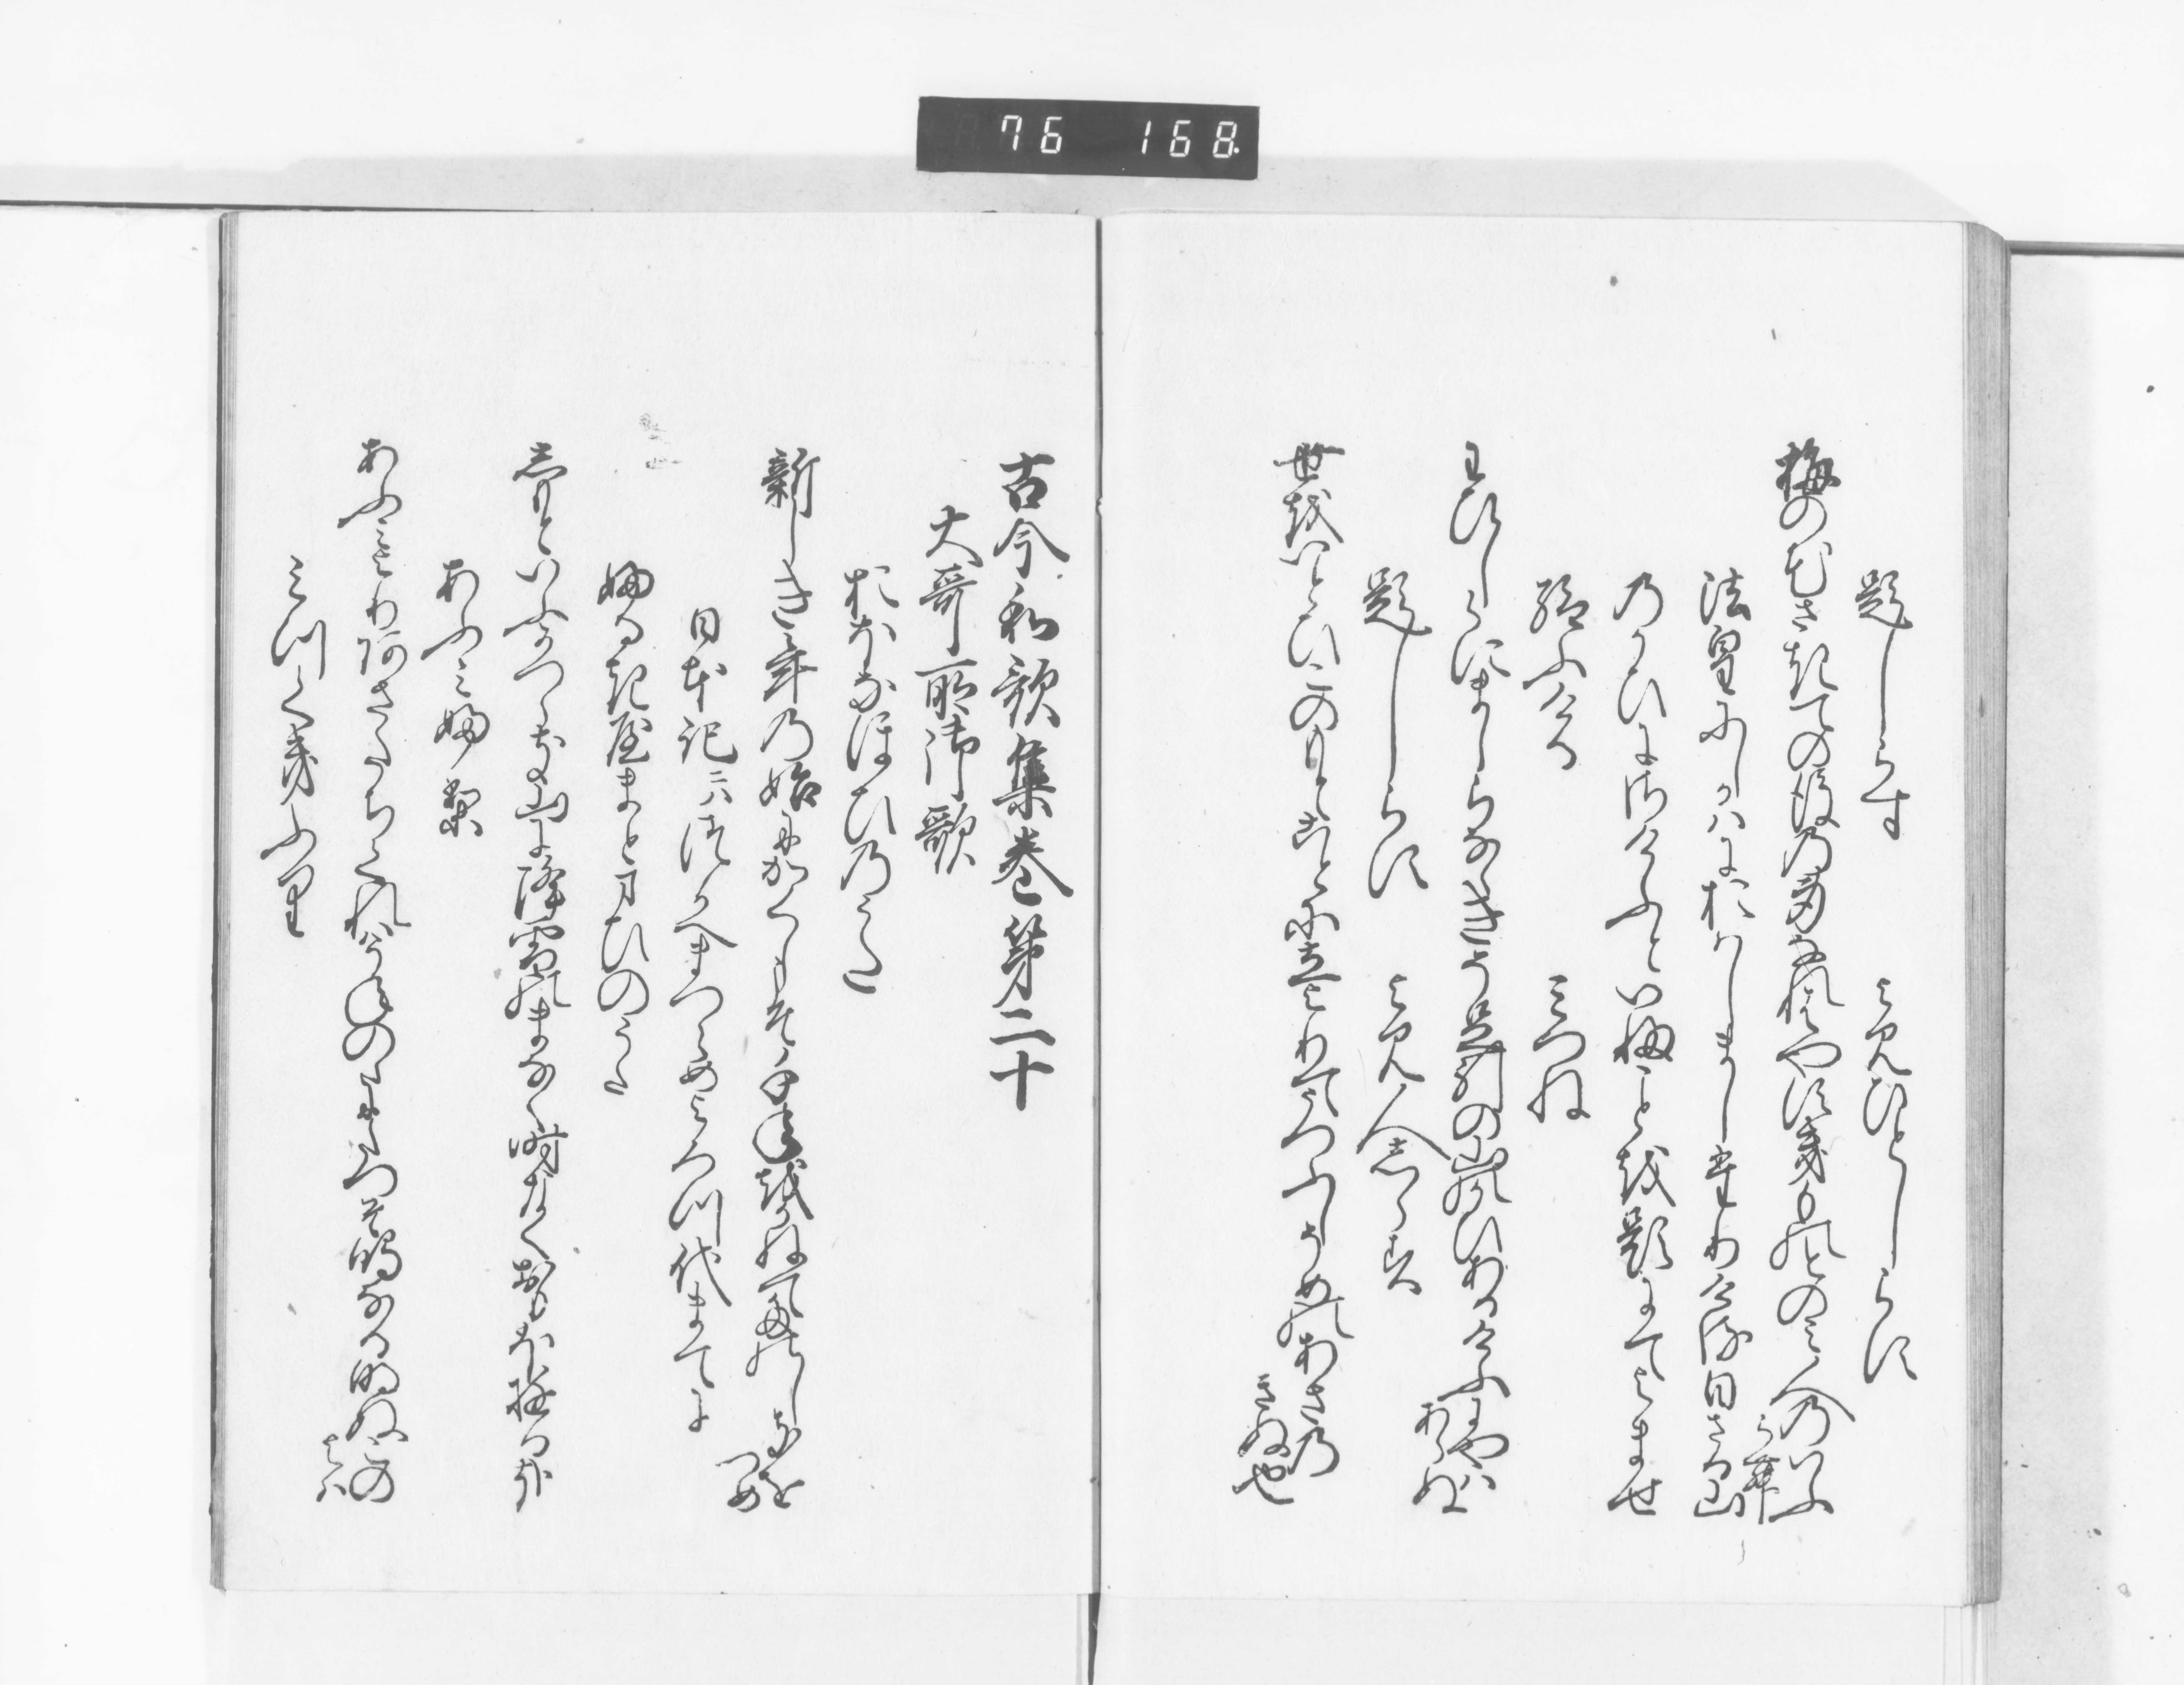 76 168
題しらす よみひとしらす
梅の花さきての後の身なれはやすきものとのみ人のいふ
らん
法皇にしかはにおはしましたりける日さる山
のかひにさけふといふことを題にてよませ
給ふける みつね
わひしらにましらななきそ足引の山のかひあるけふにやは
あらぬ
題しらす よみ人しらす
世をいとひこのもとことに立よりてうつふしそめのあさの
きぬ也
古今和歌集巻第二十
大哥所御歌
おほなほひのうた
新しき年の始にかくしこそ千年をかねてたのしきを
つめ
日本記にはつかへまつらめよろつ代まてに
ふるきやまとまひのうた
しもとゆふかつらき山に降雪のまなく時なくおもほゆるかな
あふみふり
あふみよりあさたちくれはうねの野にたつそ鳴なる明ぬこの
よは
みつくきふり